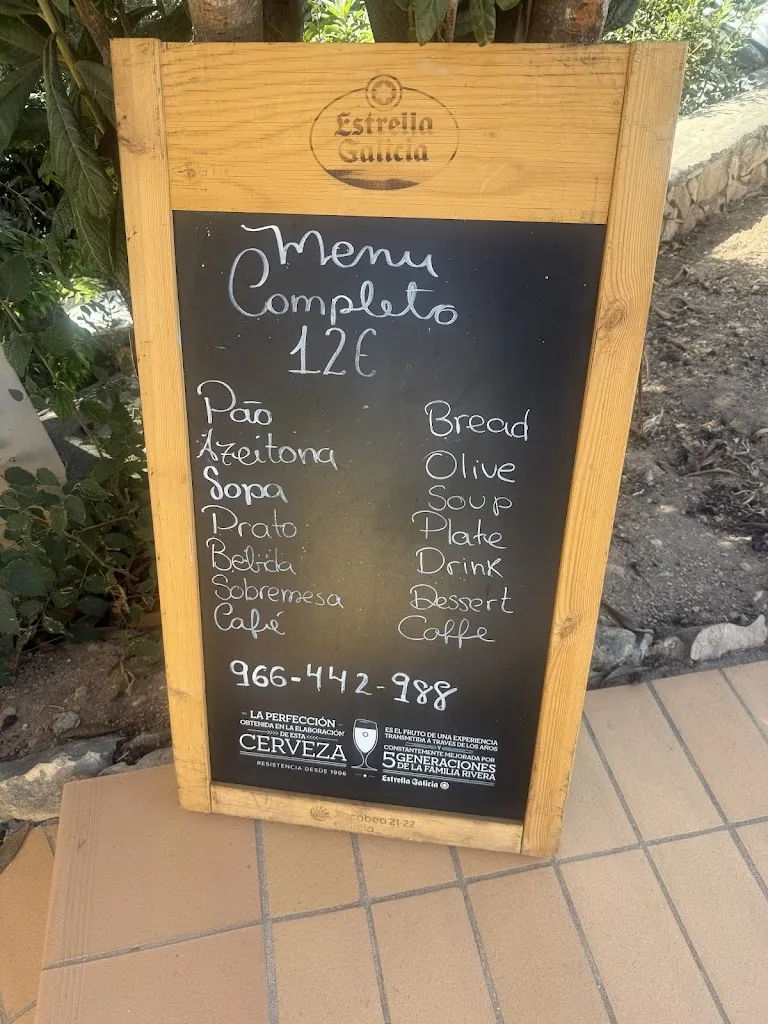 Estrella
Galicia
Menu
Completo
12€
Pão Bread
Azeitona Olive
Sopa Soup
Prato Plate
Bebida Drink
Sobremesa Dessert
Café Caffe
966-442-988
LA PERFECCIÓN
OBTENIDA EN LA ELABORACIÓN
DE ESTA
CERVEZA
RESISTENCIA DESDE 1906
ES EL FRUTO DE UNA EXPERIENCIA
TRANSMITIDA A TRAVÉS DE LOS AÑOS
Y
CONSTANTEMENTE MEJORADA POR
5 GENERACIONES
DE LA FAMILIA RIVERA
Estrella Galicia
Xacobeo 21·22